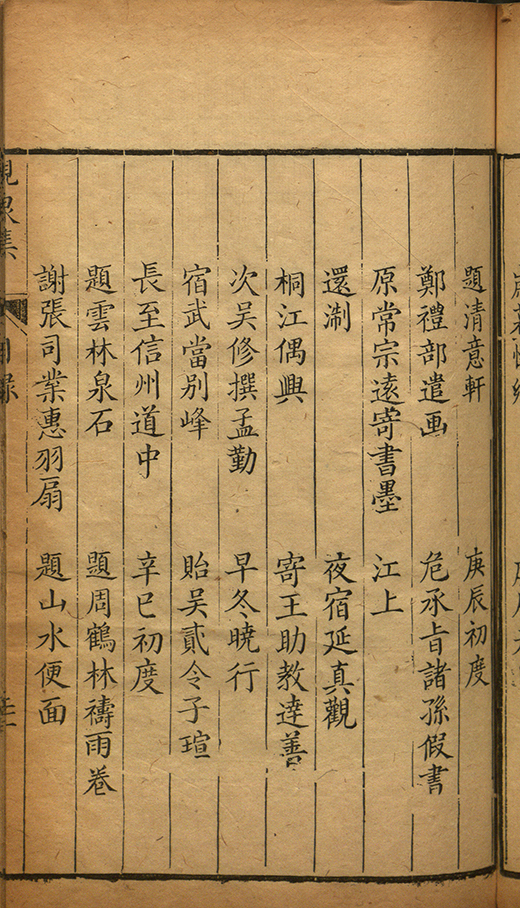 題清意軒　庚辰初度
鄭禮部遣画　危承㫖諸孫假書
原常宗遠寄書墨　江上
還淛　夜宿延真觀
桐江偶興　寄王助教逹善
次吴修撰孟勤　早冬曉行
宿武當别峰　貽吴貳令子瑄
長至信州道中　辛巳初度
題雲林泉石　題周鶴林禱雨卷
謝張司業惠羽扇　題山水便面
目録